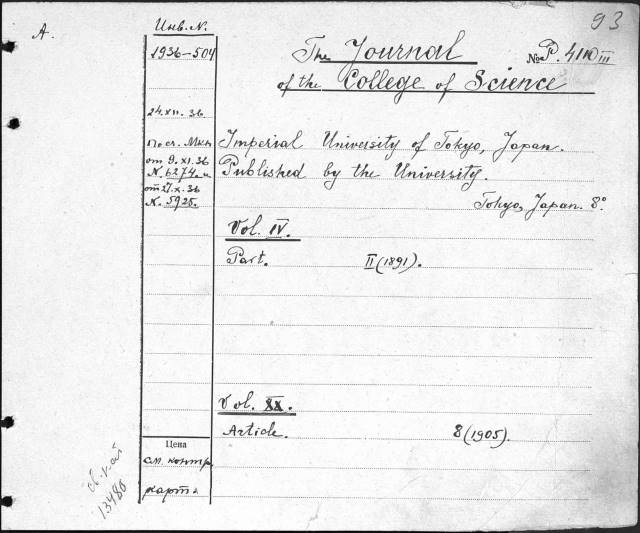 A.
Инв. N.
93
1936-504
The Journal
No P. 4110 III
of the College of Science
24.XII.36
Imperial University of Tokyo, Japan.
от 9.XI.36
Published by the University.
N. 6274. и
от 27.X.36
N. 5925.
Tokyo, Japan. 8°
Vol. IV.
Part. II (1891).
Vol. XX.
Article. 8 (1905).
Цена
см. контр.
карт
13480